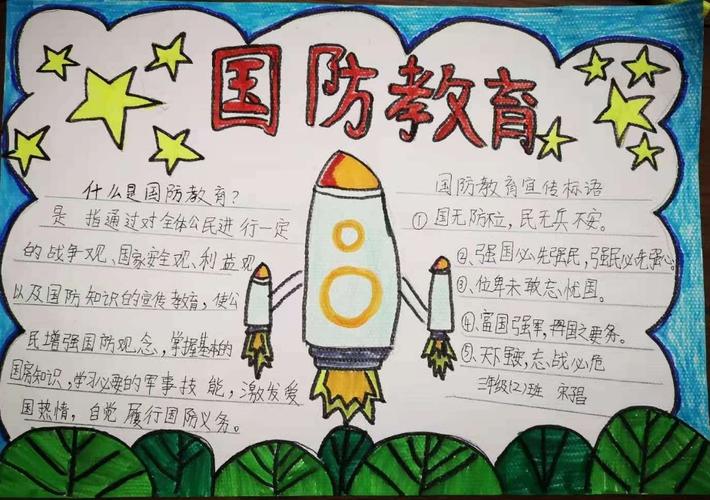 国防教育
什么是国防教育?
是 指通过对全体公民进行一定
的战争观、国家安全观、利益观
以及国防知识的宣传教育，使公
民增强国防观念，掌握基本的
国防知识，学习必要的军事技能，激发爱
国热情，自觉履行国防义务。
国防教育宣传标语
①国无防不立，民无兵不安。
②、强国必先强民，强民必先强心。
③、位卑未敢忘忧国。
④、富国强军，国之要务。
⑤、天下安，忘战必危
二年级(2)班 宋